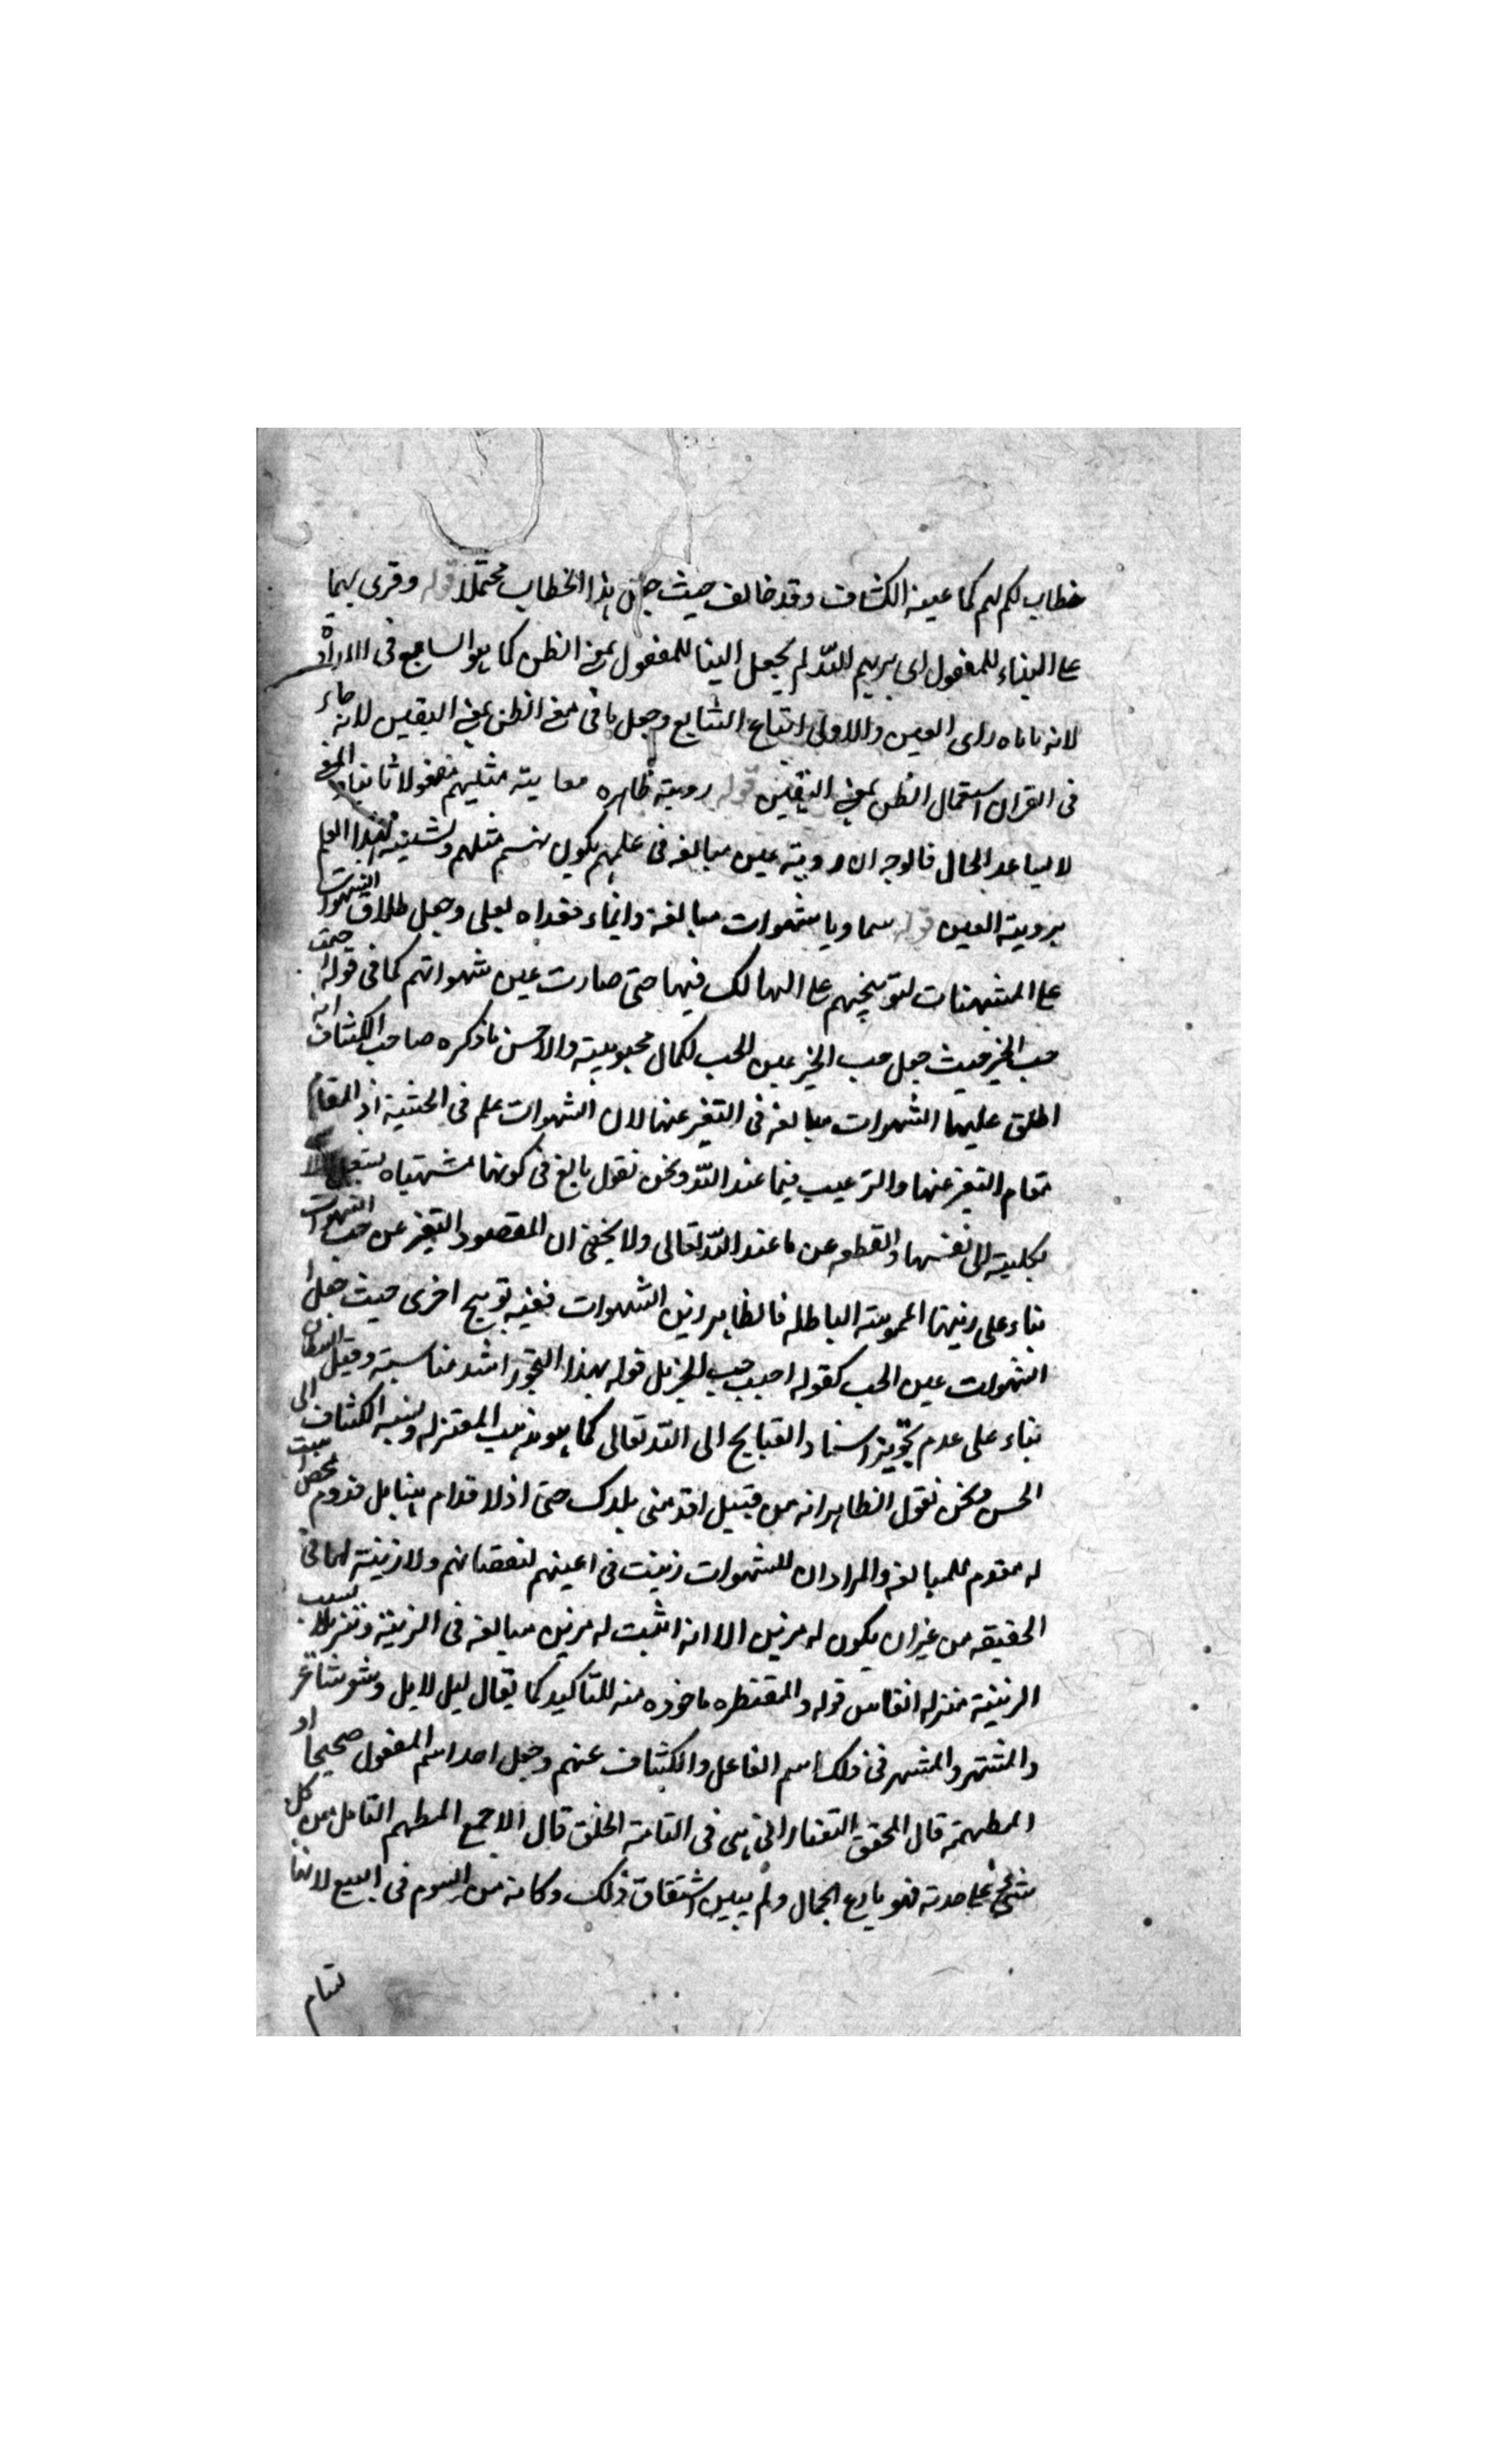 خطاب لكم لهم كما عينه الكشاف وقد خالف حيث جعل هذا الخطاب محتملا قوله وقرى بهما
على البناء للمفعول اى يريهم الله لم يجعل البنا للمفعول بمعنى الظن كما هو الشايع فى الاراة
لانه ياباه راى العين والاولى اتباع الشايع وجعل باقى معنى الظن بمعنى اليقين لانه جاء
فى القران استعمال الظن بمعنى اليقين قوله روية ظاهره معاينة مثليهم مفعولا ثانيا والمعنى
لا يساعد الحال فالوجه ان روية عين مبالغه فى علمهم بكونهم مثلهم وتشبيه لهذا العلم
بروية العين قوله سماويا شهوات مبالغة وايماء فعداه بعلى وجعل اطلاق الشهوات
على المشتهيات لتوبيخهم على التهالك فيها حتى صارت عين شهواتهم كما فى قوله احببت
حب الخير حيث جعل حب الخير عين الحب لكمال محبوبيته والاحسن ما ذكره صاحب الكشاف انه
اطلق عليها الشهوات مبالغه فى التنفير عنها لان الشهوات علم فى الخسية اذ المقام
مقام التنفير عنها والترغيب فيما عند الله ونحن نقول بالغ فى كونها مشتهاه
بكليته الى نفسها والقطع عن ما عند الله تعالى ولا يخفى ان المقصود التنفير عن حب الشهوات
بناء على زينتها المموهة الباطله فالظاهر زين الشهوات ففيه توبيخ اخرى حيث جعل
الشهوات عين الحب كقوله احببت حب الخير بل قوله بهذا التجوز اشد مناسبة وقيل الشيطان
بناء على عدم تجويز اسناد القبايح الى الله تعالى كما هو مذهب المعتزله ونسبه الكشاف الى
الحسن ونحن نقول الظاهر انه من قبيل اقدمنى بلدك حتى اذ لا اقدام هنا بل قدوم محض
له مقدم للمبالغه والمراد ان للشهوات زينت فى اعينهم لنقصانهم ولا زينة لها فى
الحقيقه من غير ان يكون له مزين الا انه اثبت له مزين مبالغه فى الزينة وتنزيلا لسبب
الزينة منزله الفاعل قوله والمقنطره ماخوذه منه للتاكيد كما يقال ليل لايل وشعر شاعر
والمشتهر فى ذلك اسم الفاعل والكشاف عنهم وجعل احد اسم المفعول صحيحا او
المطهمة قال المحقق التفتازانى هى فى التامة الخلق قال الاصمعى المطهم التام من كل
شئ على حدته فهو بارع الجمال ولم يبين اشتقاق ذلك وكانه من السوم فى البيع لانها
تسام